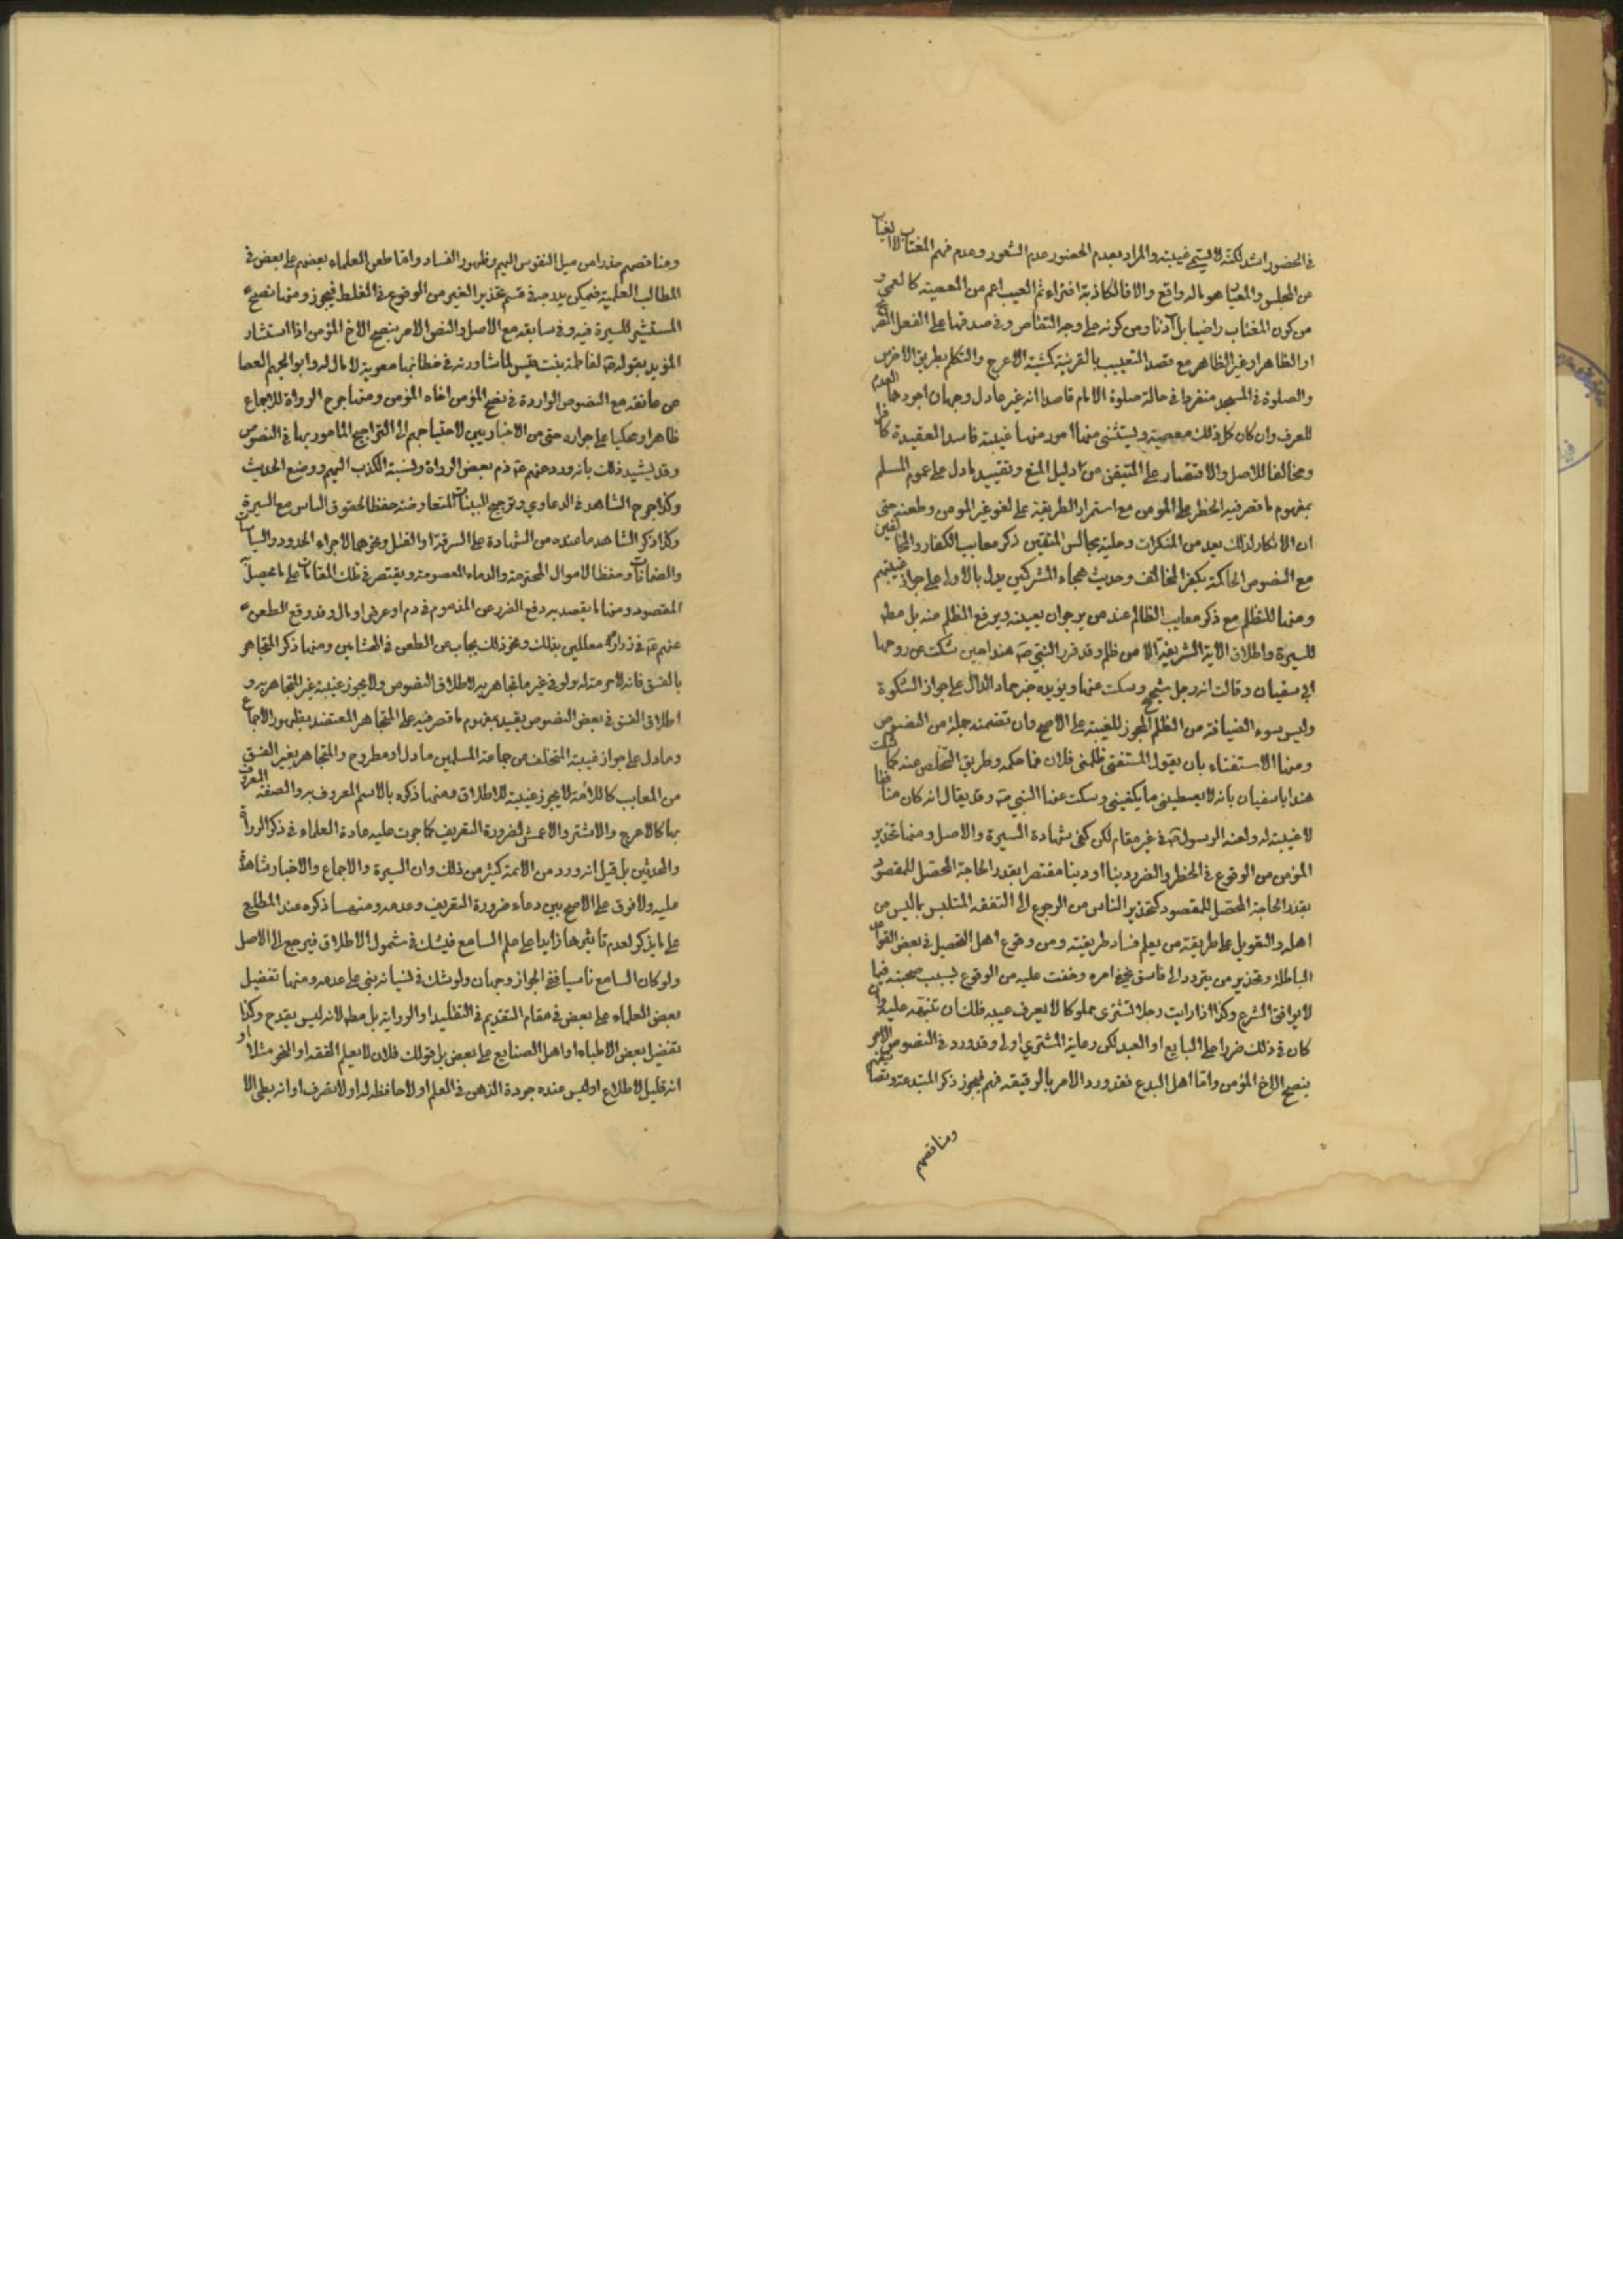 في الحضور اشد لكنه لا يسمى غيبته والمراد بعدم الحضور عدم الشعور وعدم فهم المغتاب لا الغياب
عن المجلس والعيب ما هو له واقع والا فالكاذبة افتراء ثم العيب اعم من المعصية كالعمى و
من كون المغتاب راضيا بل آذنا ومن كونه على وجه التقاص وفي صدقها على الفعل
او الظاهر او غير الظاهر مع قصد التعييب بالقرينة كمشية الاعرج والتكلم بطريق الاخرس
والصلوة في المسجد منفردا في حالة صلوة الامام قاصدا انه غير عادل وجهان اجودهما العدم
للعرف وان كان كل ذلك معصية ويستثنى منها امور منها غيبة فاسد العقيدة كافرا
ومخالفا للاصل والاقتصار على المتيقن من دليل المنع وتقييد ما دل على عموم المسلم
بمفهوم ما قصر فيه الحظر على المومن مع استمرار الطريقة على لغو غير المومن وطعنه حتى
ان الانكار لذلك يعد من المنكرات وحلية مجالس المتقين ذكر معايب الكفار والمخالفين
مع النصوص الحاكمة بكفر المخالف وحديث هجاء المشركين يدل بالاولى على جواز غيبتهم
ومنها للتظلم مع ذكر معايب الظالم عند من يرجو ان يعينه ويرفع الظلم عنه بل مطلقا
للسيرة واطلاق الاية الشريفة الا من ظلم وقد قرر النبي ص هندا حين شكت عن زوجها
ابي سفيان وقالت انه رجل شحيح وسكت عنها ويؤيده خبر حماد الدال على جواز الشكوة
وليس سوء الضيافة من الظلم المجوز للغيبة على الاصح وان تضمنه جملة من النصوص
ومنها الاستفتاء بان يقول المستفتى ظلمنى فلان فما حكمه وطريق التخلص عنه كما شكت
هند اباسفيان بانه لا يعطينى ما يكفينى وسكت عنها النبي ص وقد يقال انه كان منافقا
لا غيبة له ولعنه الرسول ص في غير مقام لكن كفى شهادة السيرة والاصل ومنها تحذير
المؤمن من الوقوع في الخطر والضرر دنيا او دينا مقتصرا بقدر الحاجة المحصل للمقصود
بقدر الحاجة المحصل للمقصود كتحذير الناس من الرجوع الى التفقه المتلبس بما ليس من
اهله والتعويل على طريقة من يعلم فساد طريقته ومن وقوع اهل التحصيل في بعض القواعد
الباطلة وتحذير من يتردد الى فاسق يخفى امره وخفت عليه من الوقوع بسبب صحبته فيما
لا يوافق الشرع وكذا اذا رايت رجلا اشترى مملوكا لا يعرف عيبه فلك ان تنبهه عليه وان
كان في ذلك ضررا على البايع او العبد لكن رعاية المشتري اولى وقد ورد في النصوص الامر
بنصح الاخ المؤمن واما اهل البدع فقد ورد الامر بالوقيعة فيهم فيجوز ذكر المبتدعة ونقصا
ومناقصهم
ومناقصهم حذرا من ميل النفوس اليهم وظهور الفساد واما طعن العلماء بعضهم على بعض في
المطالب العلمية فيمكن يدرجه في قسم تحذير الغير من الوقوع في الغلط فيجوز ومنها نصح
المستشير للسيرة فيه وفي سابقه مع الاصل والنص الامر بنصح الاخ المؤمن اذا استشار
المؤيد بقوله ص لفاطمة بنت قيس لما شاورته في خطابها معوية لا مال له وابو الجهم العصا
عن عاتقه مع النصوص الواردة في نصح المؤمن اخاه المؤمن ومنها جرح الرواة للاجماع
ظاهرا ومحكيا على جوازه حتى من الاخباريين لاحتياجهم الى التراجيح المامور بها في النصوص
وقد يشيد ذلك بانه ورد عنهم ع ذم بعض الرواة ونسبة الكذب اليهم ووضع الحديث
وكذا جرح الشاهد في الدعاوي وترجيح البينات المتعارضة حفظا لحقوق الناس مع السيرة
وكذا ذكر الشاهد ما عنده من الشهادة على السرقة او القتل ونحوهما لاجراء الحدود والسياسات
والضمانات وحفظا لاموال المحترمة والدماء المعصومة ويقتصر في تلك المقامات على ما يحصل
المقصود ومنها ما يقصد به دفع الضرر عن المذموم في دم او عرض او مال وقد وقع الطعن
عنهم ع في زرارة معللين بذلك ونحو ذلك يجاب عن الطعن في الهشامين ومنها ذكر المتجاهر
بالفسق فانه لاحرمة له ولو في غير ما تجاهر به لاطلاق النصوص ولا يجوز غيبة غير المتجاهر به و
اطلاق الفسق في بعض النصوص يقيد بمفهوم ما قصر فيه على المتجاهر المعتضد بظهور الاجماع
وما دل على جواز غيبة المتخلف عن جماعة المسلمين مأول او مطروح والمتجاهر بغير الفسق
من المعايب كاللامة لا يجوز غيبته للاطلاق ومنها ذكره بالاسم المعروف به والصفة المعروف
بها كالاعرج والاشتر والاعمش لضرورة التعريف كما جرت عليه عادة العلماء في ذكر الرواة
والمحدثين بل قيل انه ورد من الائمة كثير من ذلك وان السيرة والاجماع والاخبار شاهدة
عليه ولا فرق على الاصح بين دعاء ضرورة التعريف وعدمه ومنها ذكره عند المطلع
على ما يذكر لعدم تاثيرها زايدا على علم السامع فيشك في شمول الاطلاق فيرجع الى الاصل
ولو كان السامع ناسيا ففي الجواز وجهان ولو شك في نسيانه بنى على عدمه ومنها تفضيل
بعض العلماء على بعض في مقام التقديم في التقليد او الرواية بل مطلقا لانه ليس بقدح وكذا
تفضيل بعض الاطباء او اهل الصنايع على بعض بل قولك فلان لا يعلم الفقه او النحو مثلا او
انه قليل الاطلاع او ليس عنده جودة الذهن في العلم او لا حافظه له او لا تصرف او انه بطى الا